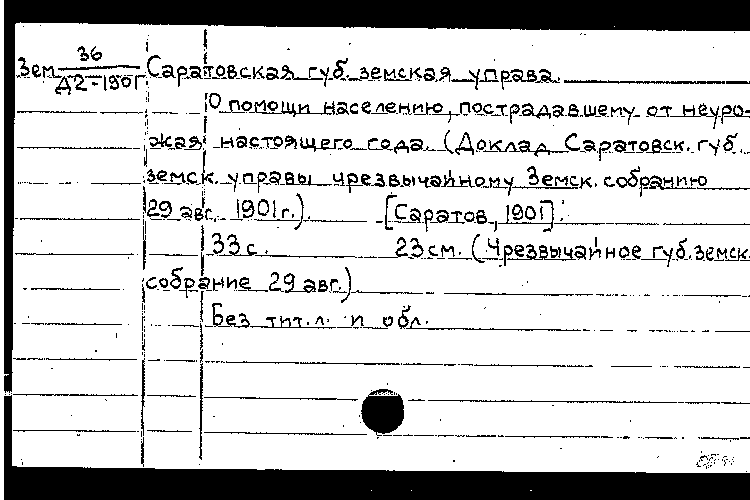 36
Зем Д2-1901 Саратовская губ. земская управа.
О помощи населению, пострадавшему от неуро-
жая настоящего года. (Доклад Саратовск. губ.
земск. управы чрезвычайному Земск. собранию
29 авг. 1901 г.). [Саратов, 1901].
33 с. 23 см. (Чрезвычайное губ. земск.
собрание 29 авг.)
Без тит. л. и обл.